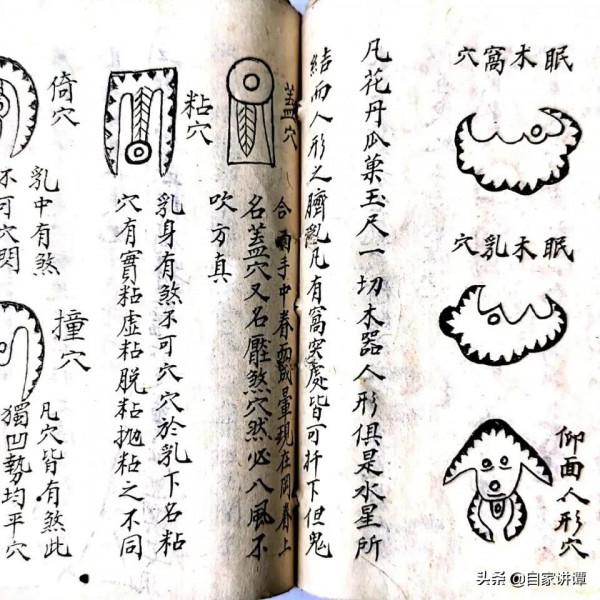 眠木窩穴
眠木乳穴
仰面人形穴
凡花丹瓜菓玉尺一切木器人形俱是水星所
結而人形之臍凡有窩突處皆可扦下但鬼
蓋穴
合手中暈現在岡脊上
名蓋穴又名壓煞穴然必八風不
吹方真
粘穴
乳身有煞不可穴穴於乳下名粘
穴有實粘虛粘脫粘拋粘之不同
倚穴
乳中有煞
不可穴閃
撞穴
凡穴皆有煞此
獨凹勢均平穴
头条 @自家讲谭